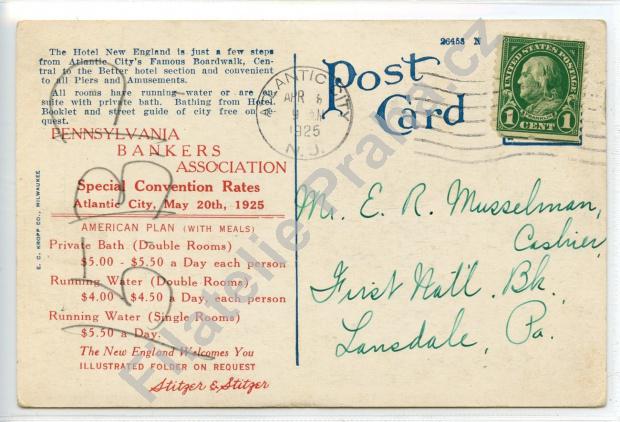 The Hotel New England is just a few steps
from Atlantic City's Famous Boardwalk, Cen-
tral to the Better hotel section and convenient
to all Piers and Amusements.
All rooms have running water or are en-
suite with private bath. Bathing from Hotel.
Booklet and street guide of city free on re-
quest.
PENNSYLVANIA
BANKERS
ASSOCIATION
Special Convention Rates
Atlantic City, May 20th, 1925
AMERICAN PLAN (WITH MEALS)
Private Bath (Double Rooms)
$5.00 - $5.50 a Day each person
Running Water (Double Rooms)
$4.00 - $4.50 a Day, each person
Running Water (Single Rooms)
$5.50 a Day.
The New England Welcomes You
ILLUSTRATED FOLDER ON REQUEST
Stitzer & Stitzer
E. C. KROPP CO., MILWAUKEE
26453 N
Post
Card
ATLANTIC CITY
APR
1925
N.J.
UNITED STATES POSTAGE
FRANKLIN
1 CENT 1
Mr. E. R. Musselman,
Cashier,
First Nat'l. Bk.
Lansdale, Pa.
Filatelie-Praha.cz